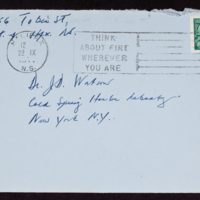 Tobin St,
THINK
ABOUT FIRE
WHEREVER
YOU ARE
12
22 IX
N.S.
Dr. J.D. Watson
Cold Spring Harbor Laboratory
New York N.Y.